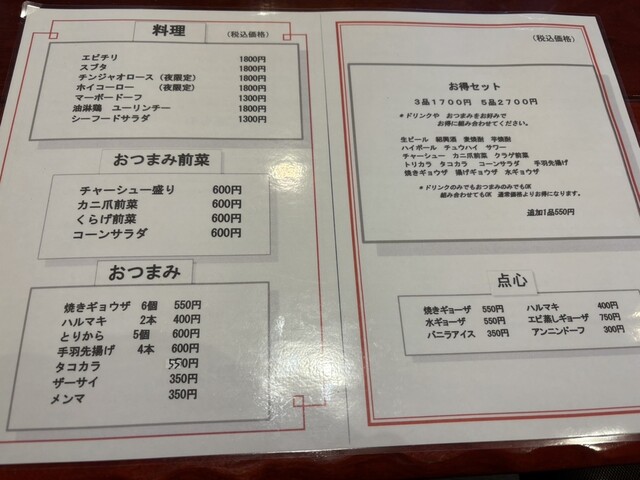 料理 (税込価格)
エビチリ 1800円
スブタ 1800円
チンジャオロース (夜限定) 1800円
ホイコーロー (夜限定) 1800円
マーボードーフ 1300円
油淋鶏 ユーリンチー 1800円
シーフードサラダ 1300円
おつまみ前菜
チャーシュー盛り 600円
カニ爪前菜 600円
くらげ前菜 600円
コーンサラダ 600円
おつまみ
焼きギョウザ 6個 550円
ハルマキ 2本 400円
とりから 5個 600円
手羽先揚げ 4本 600円
タコカラ
ザーサイ 350円
メンマ 350円
(税込価格)
お得セット
3品1700円 5品2700円
*ドリンクや おつまみをお好みで
お得に組み合わせてください。
生ビール 紹興酒 麦焼酎 芋焼酎
ハイボール チュウハイ サワー
チャーシュー カニ爪前菜 クラゲ前菜
トリカラ タコカラ コーンサラダ 手羽先揚げ
焼きギョウザ 揚げギョウザ 水ギョウザ
*ドリンクのみでもおつまみのみでもOK
組み合わせてもOK 通常価格よりお得になります。
追加1品550円
点心
焼きギョーザ 550円 ハルマキ 400円
水ギョーザ 550円 エビ蒸しギョーザ 750円
バニラアイス 350円 アンニンドーフ 300円